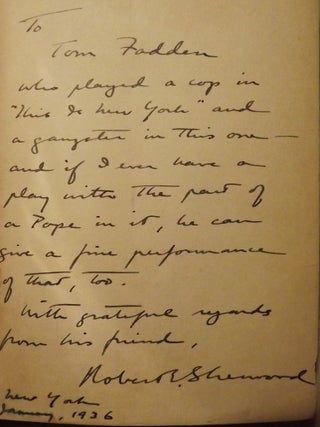 To
Tom Fadden
who played a cop in
"This Is New York" and
a gangster in this one —
and if I ever have a
play with the part of
a Pope in it, he can
give a fine performance
of that, too.
With grateful regards
from his friend,
Robert E. Sherwood
New York
January, 1936